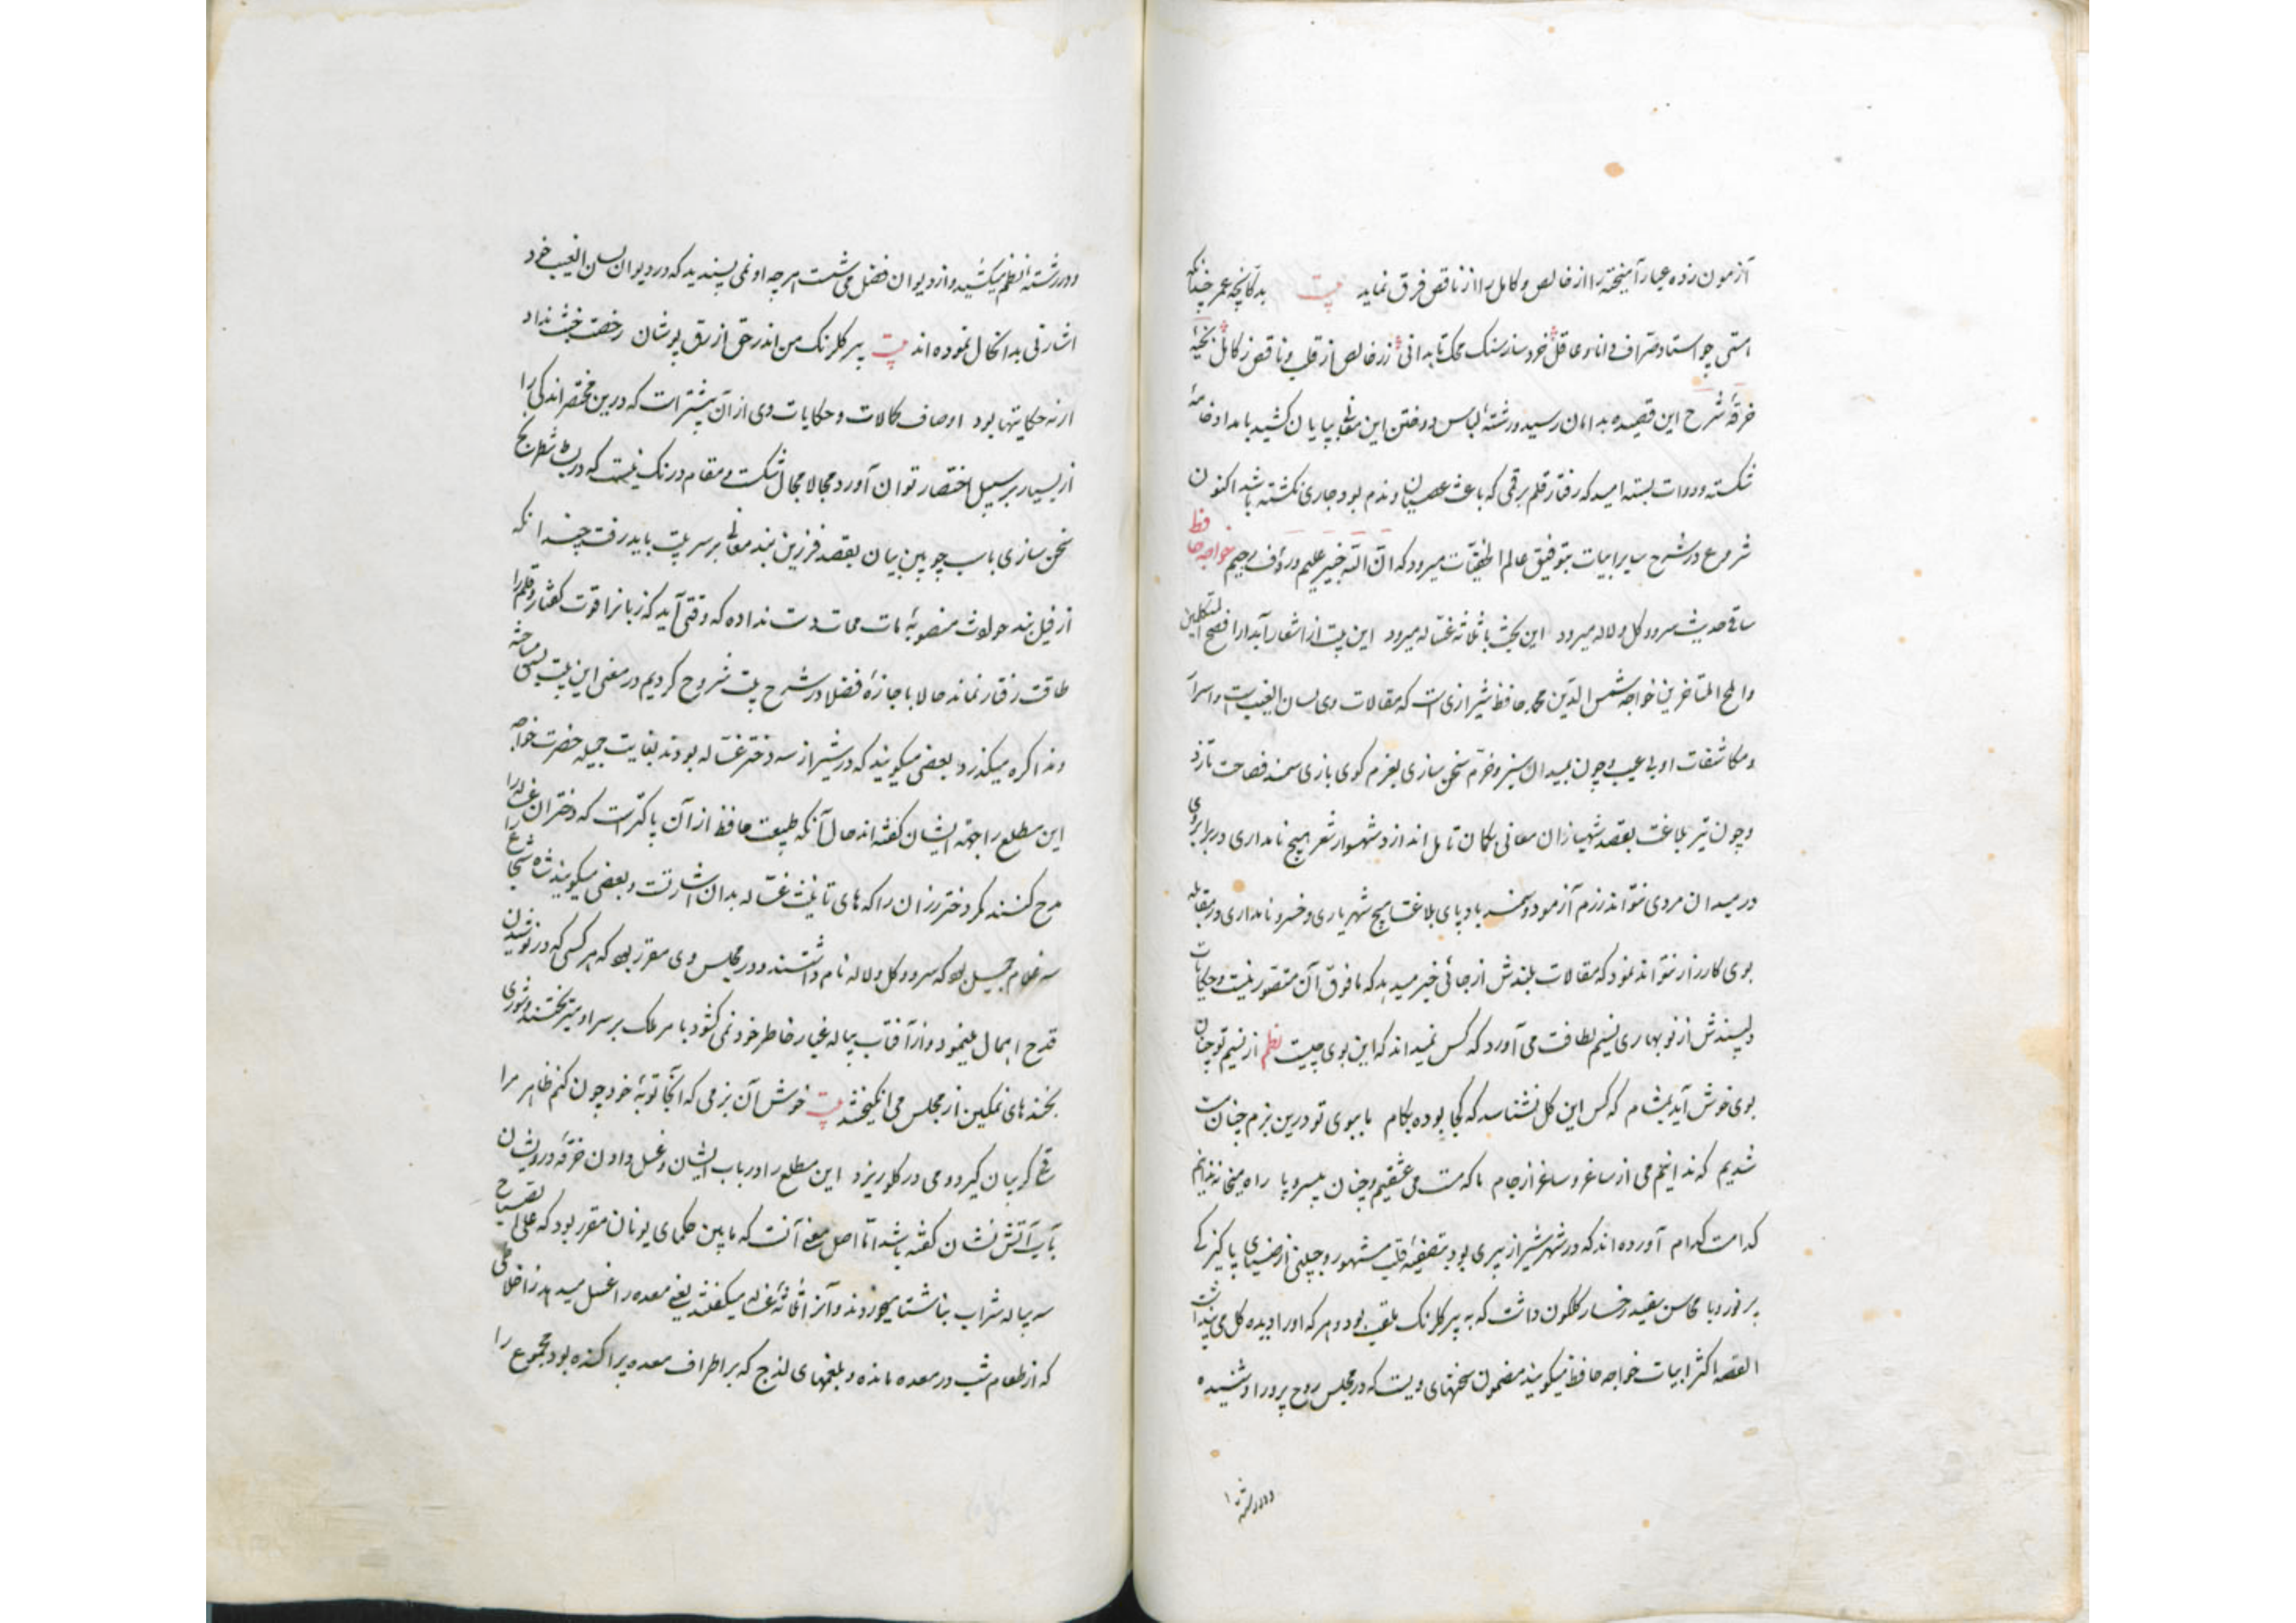 آزمون زده عیار آمیخته را از خالص و کامل را از ناقص فرق نماید بیت بدکانچه عمر چندانکه
استی چو استاد صراف دانا و عاقل خرد ساز سنک محک تا بدانی زر خالص از قلب و ناقص ز کامل بخیهٔ
خرقهٔ شرح این قصیده بدامان رسید و رشتهٔ لباس دوختن این معانی بپایان کشید بامداد خامهٔ
شکسته و دوات بسته امید که رفتار قلم برقمی که باعث عصیان و ندم بود جاری نکشته باشد اکنون
شروع در شرح سایر ابیات بتوفیق عالم الخفیّات میرود که انّ الله خبیر علیم و رؤف رحیم خواجه حافظ
ساقی حدیث سرو و کل و لاله میرود این بحث با ثلاثه غسّاله میرود این بیت از اشعار آبدار افصح المتکلمین
و املح المتاخرین خواجه شمس الدّین محمد حافظ شیرازی است که مقالات وی لسان الغیب است و اسرار
و مکاشفات او بی عیب و چون بمیدان سبز و خرّم سخن سازی بعزم کوی بازی سمند فصاحت تازد
و چون تیر بلاغت بقصد شهبازان معانی بکمان تامل اندازد شهسوار شعر هیچ نامداری در برابر وی
در میدان مردی نتواند رزم آزمود و سمند بادپای بلاغت هیچ شهریاری و خسرو نامداری در مقابله
بوی کارزار نتواند نمود که مقالات بلندش از جائی خبر میدهد که مافوق آن متصور نیست و حکایات
دلپسندش از نوبهاری نسیم لطافت می آورد که کس نمیداند که این بوی چیست نظم از نسیم تو چنان
بوی خوش آید بمشام که کس این کل نشناسد که کجا بوده بکام ما ببوی تو درین بزم چنان مست
شدیم که ندانیم می از ساغر و ساغر از جام ما که مست می عشقیم و چنان بیسر و پا راه میخانه ندانیم
کدامست کدام آورده اند که در شهر شیراز پیری بود بتصفیهٔ قلب مشهور و جبینی از ضیای پاکیزکی
پر نور و با محاسن سفید رخسار کلکون داشت که به پیر کلرنک ملقب بود و هر که او را دیده کل می پنداشت
القصه اکثر ابیات خواجه حافظ میکویند مضمون سخنهای ویست که در مجلس روح پرور او شنیده
و در رشته
و در رشتهٔ نظم میکشید و از دیوان فضل می شست هر چه او نمی پسندید که در دیوان لسان الغیب خود
اشارتی بدانحال نموده اند بیت پیر کلرنک من اندر حق ازرق پوشان رخصت خبث نداد
ار نه حکایتها بود اوصاف کمالات و حکایات وی از آن بیشتر است که درین مختصر اندکی را
از بسیار بر سبیل اختصار توان آورد مجالا مجال شکست و مقام درنک نیست که در بساط شطرنج
سخن سازی با اسب چوبین بیان بقصد فرزین بند معانی بر سر بیت باید رفت چندانکه
از فیل بند حوادث منصوبهٔ مات ممات دست نداده که وقتی آید که زبانرا قوت کفتار و قلم را
طاقت رفتار نماند حالا با اجازهٔ فضلا در شرح بیت شروح کردیم در معنی این بیت بسی مباحثه
و مذاکره میکذرد بعضی میکویند که در شیراز سه دختر غسّاله بودند بغایت جمیله حضرت خواجه
این مطلع را جهته ایشان کفته اند حال آنکه طبیعت حافظ از آن پاکتر است که دختران غساله را
مدح کنند مکر دختر رزان را که های تانیث غسّاله بدان اشارتست و بعضی میکویند شاه شجاع را
سه غلام جمیل بود که سرو و کل و لاله نام داشتند و در مجلس وی مقرر بود که هر کسی که در نوشیدن
قدح اهمال مینمود و از آفتاب پیاله غبار خاطر خود نمی کشود با مر ملک بر سر او میریختند و شوری
بخندهای نمکین از مجلس می انکیختند بیت خوش آن بزمی که آنجا توبهٔ خود چون کنم ظاهر مرا
ساقی کریبان کیرد و می در کلو ریزد این مطلع را در باب ایشان و غسل دادن خرقهٔ درویشان
بآب آتش نشان کفته باشد امّا اصل معنی آنست که مابین حکمای یونان مقرر بود که علی الصباح
سه پیاله شراب بناشتا میخوردند و آنرا ثلاثهٔ غساله میکفتند یعنی معده را غسل میدهد از اخلاطی
که از طعام شب در معده مانده و بلغمهای لذج که بر اطراف معده پراکنده بود مجموع را